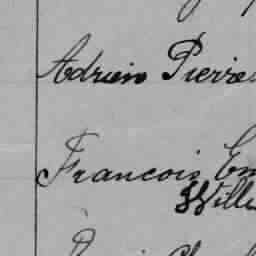 Adrien Pierre
Francois Em
Will